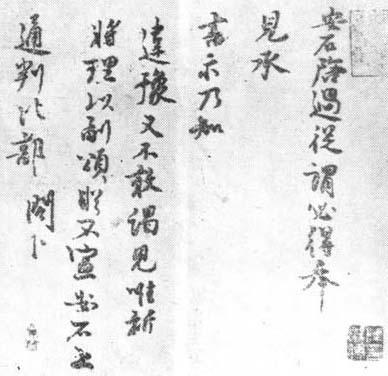 安石啓過從謂必得奉
見承
書示乃知
違豫又不敢謁見唯祈
將理以副頌
又宣安石上
通判比部 閤下